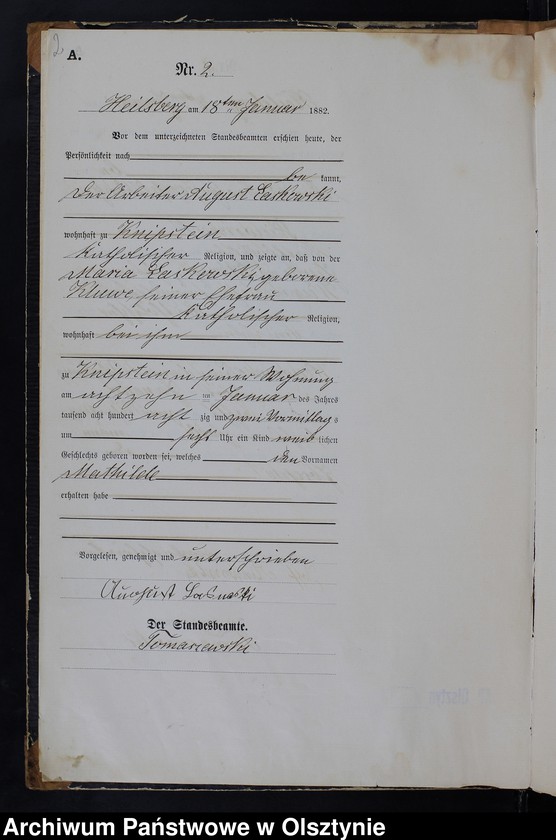 2
A.
Nr. 2.
Heilsberg am 18ten Januar 1882.
Vor dem unterzeichneten Standesbeamten erschien heute, der
Persönlichkeit nach
be kannt,
der Arbeiter August Laskowski
wohnhaft zu Knipstein
katholischer Religion, und zeigte an, daß von der
Maria Laskowski geborene
Kluwe seiner Ehefrau
katholischer Religion,
wohnhaft bei ihm
zu Knipstein in seiner Wohnung
am achtzehn ten Januar des Jahres
tausend acht hundert acht zig und zwei Vormittags
um sechs Uhr ein Kind weib lichen
Geschlechts geboren worden sei, welches den Vornamen
Mathilde
erhalten habe
Vorgelesen, genehmigt und unterschrieben
August
Der Standesbeamte.
Tomaszewski
Olsztyn
Archiwum Państwowe w Olsztynie